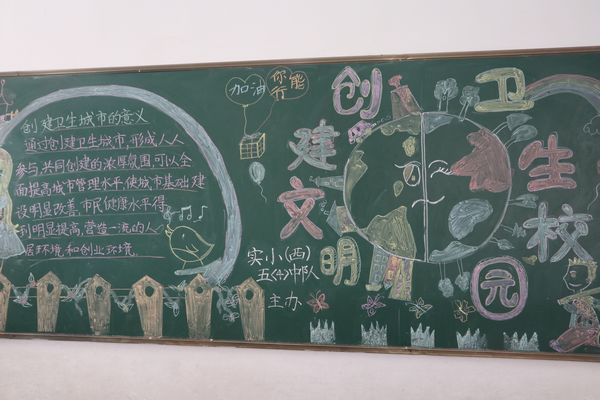 创建卫生城市的意义
通过创建卫生城市,形成人人
参与,共同创建的浓厚氛围,可以全
面提高城市管理水平,使城市基础建
设明显改善,市民健康水平得
到明显提高,营造一流的人
居环境和创业环境
加油
你能行
实小(西)
五(4)中队
主办
创建文明
卫生校园